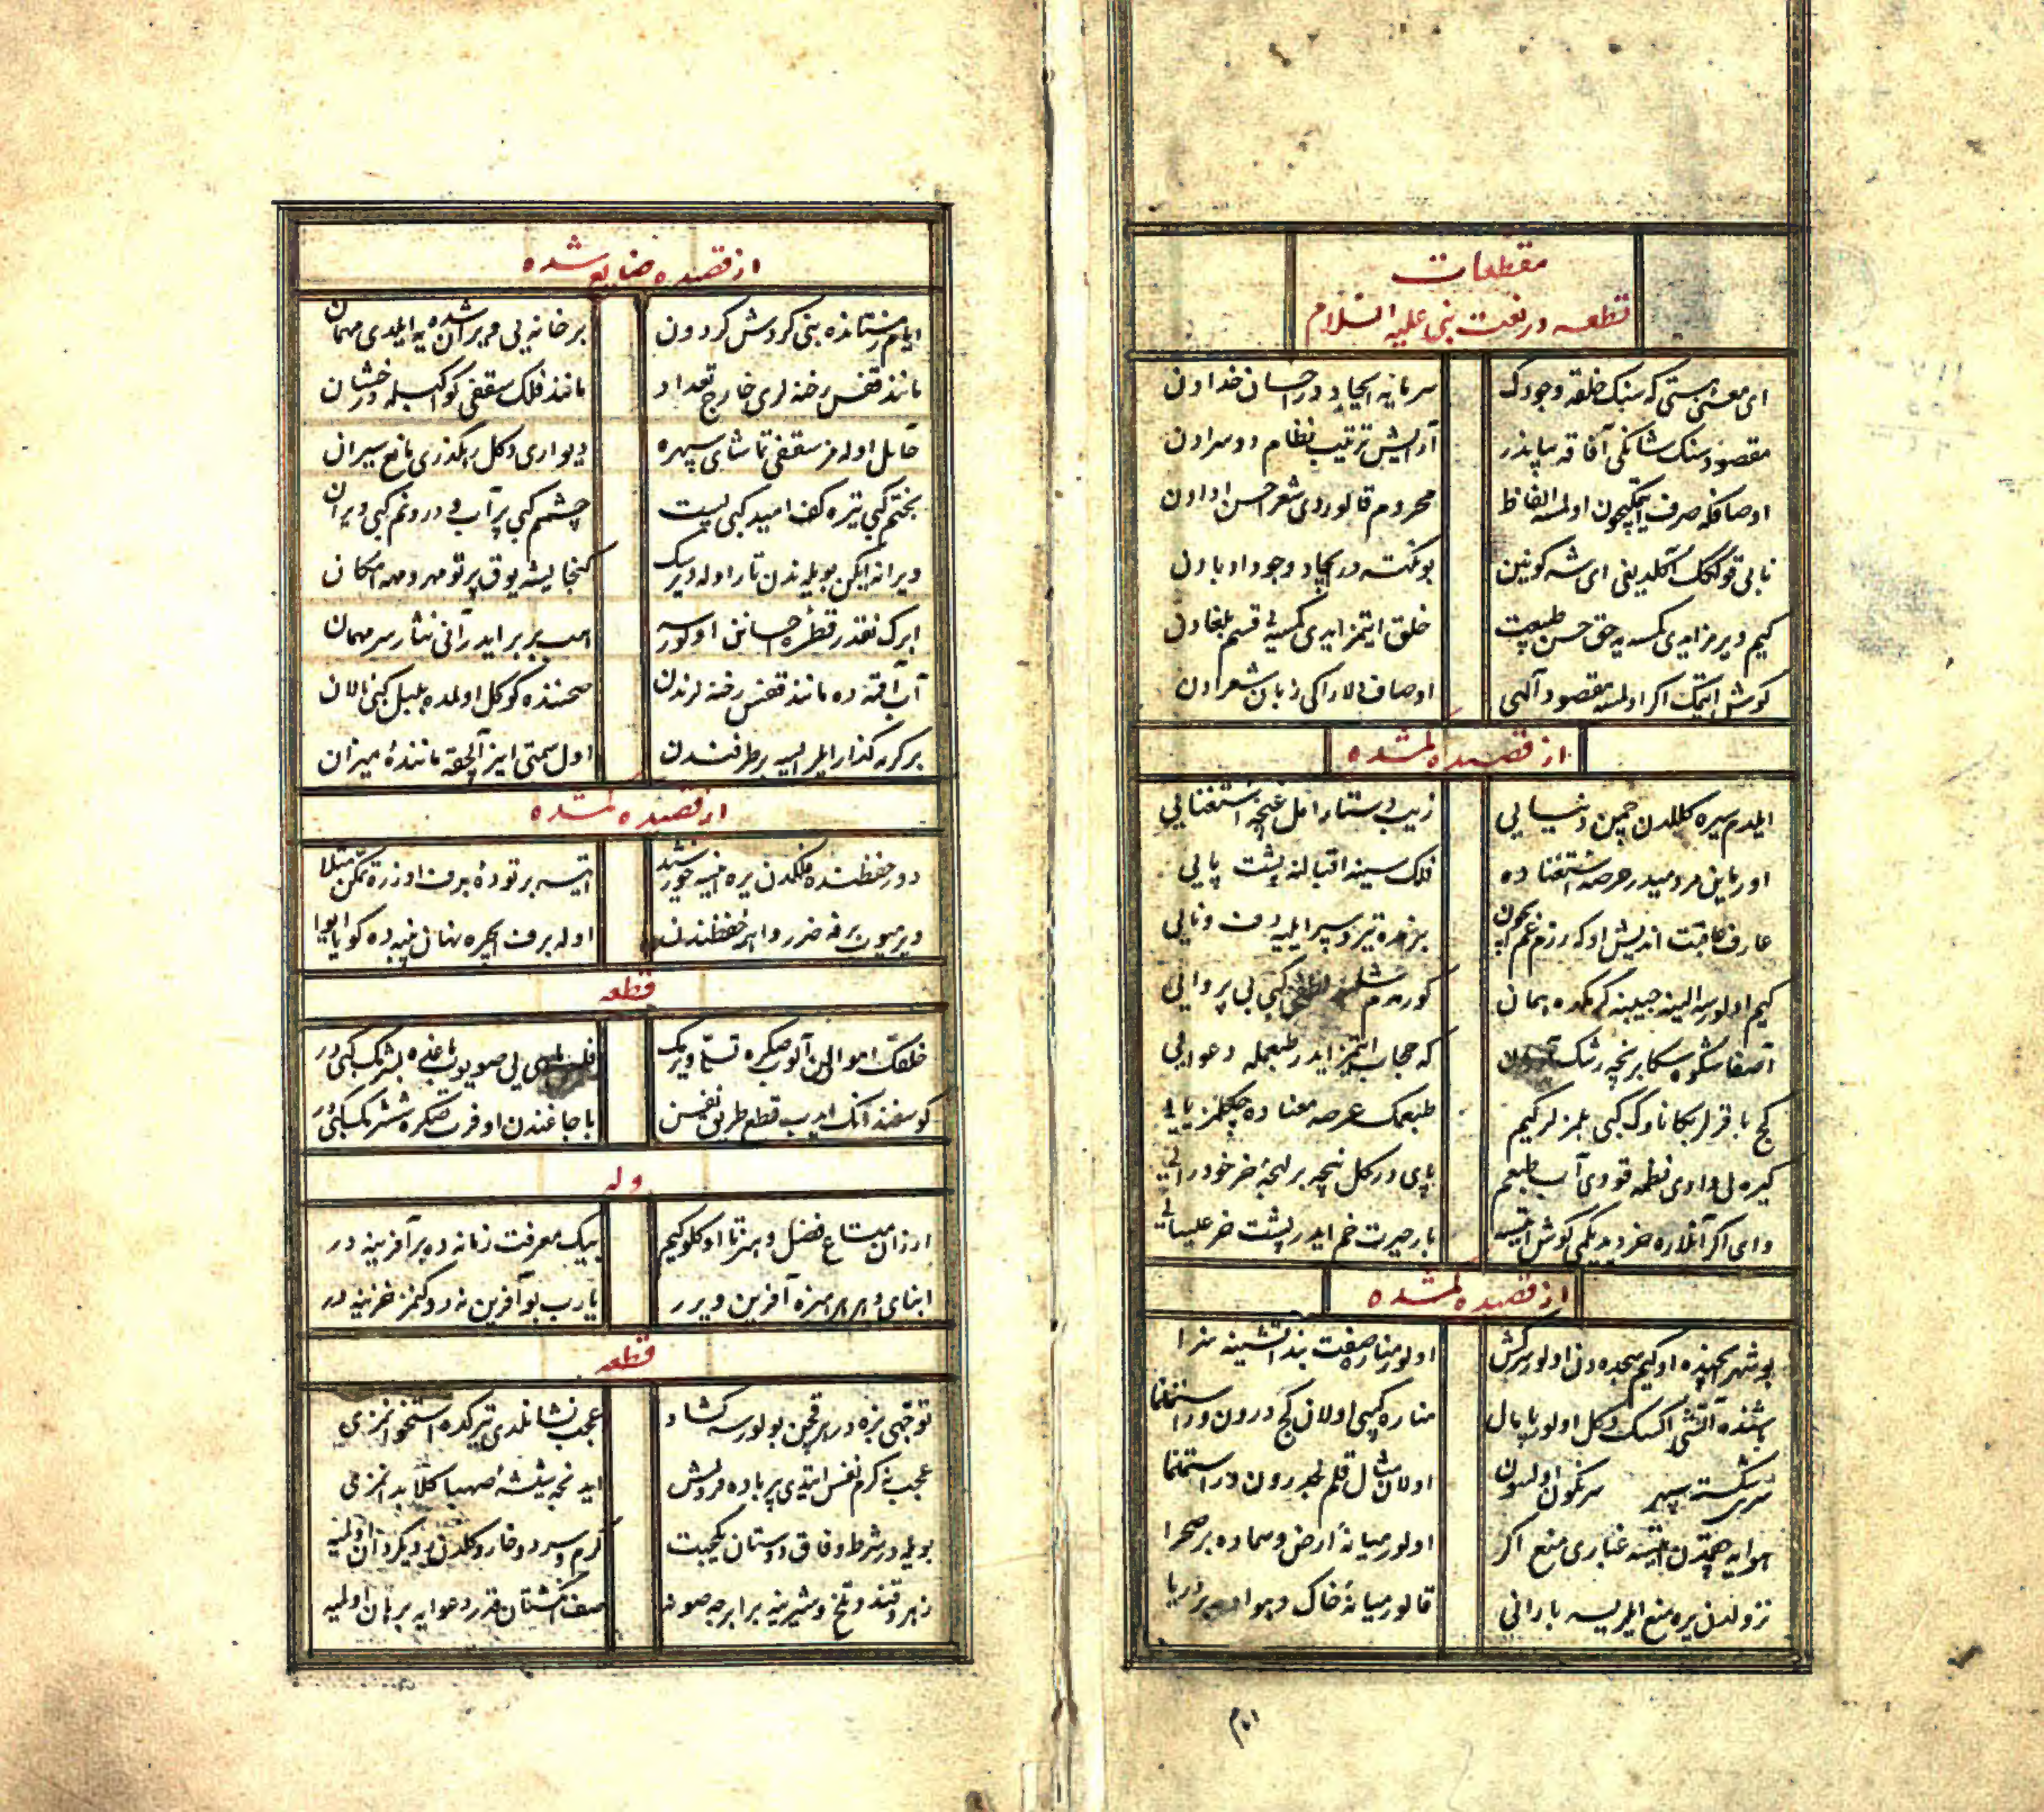 مقطعات
قطعه در نعت نبی علیه السلام
ای معنئ هستی که سنک خلقه وجودک
سرمایه ایجاد در احسان خدادن
مقصود سنک شانکی آفاقه بیاندر
آرایش ترتیب نظام دوسرادن
اوصافکه صرف ایتمکیچون اولمسه الفاظ
محروم قالوردی شعرا حسن ادادن
نابی قولکک آکلدیغی ای شه کونین
بو نکته در ایجاد وجود ادبادن
کیم ویرمز ایدی کسه یه حق حسن طبیعت
خلق ایتمز ایدی کمسه یی قسم بلغادن
کوش ایتمک اکر اولمسه مقصود آلهی
اوصاف دلاراکی زبان شعرادن
از قصیده کمشده
ایلدم سیره کللدن چمن دنیایی
زیب دستار امل غنچه استغنایی
اورماین مردمیدر عرصه استغناده
فلک سینه اقبالنه پشت پایی
عارف عاقبت اندیش اودکه رزم غم ایچون
کیم اولورسه الینه جیبینه کرمکده همان
کورمدم کبی بی پروایی
آصفا شکوه سکا برنچه رشک
که حجاب ایتمز ایدر طبعمله دعوایی
کج باقرلر بکا ناوک کبی بلمزلر کیم
طبعمک عرصه معناده چکلمز یایی
کیره لی وادی نظمه قودی آب طبعم
پای در کل نیچه بر لهجه خر خودرایی
وای اکر آنلاره خر دیدیکمی کوش ایتسه
بار حیرت خم ایدر پشت خر عیسایی
از قصیده کمشده
بو شهر ایچنده اوکیم سجده دن اولور سرکش
اولور مناره صفت بند آتشینه سزا
باشنده آتشی اکسک دکل اولور پامال
مناره کبی اولان کج درون و راست نما
سری شکسته سپهر سرنکون اولسون
اولان مثال قلم کجدرون و راست نما
هوایه همتدن ایتسه غباری منع اکر
اولور میانهٔ ارض و سماده بر صحرا
نزولدن یره منع ایلریسه بارانی
قالور میانهٔ خاک و هواده بر دریا
۱۵۲
از قصیده ضایع شده
ایام رستانده بنی کردش کردون
بر خانه یی ویران شده یه ایلدی مهمان
مانند قفس رخنه لری خارج تعداد
مانند فلک سقفی کواکبله درخشان
حائل اوله مز سقفی تماشای سپهره
دیواری دکل رهکذری مانع سیران
بختم کبی تیره کف امید کبی پست
چشمم کبی پر آب و درونم کبی ویران
ویرانه ایکن بویله ندن تار اوله دیرسک
کنجایشه یوق پرتو مهر و مهه امکان
ابرک نقدر قطره احسانن اوکورسه
هب بر بر ایدر آنی نثار سر مهمان
صحننده کوکل اولمده بلبل کبی نالان
هر کره کذار ایلر ایسه بر طرفندن
اول سمتی ایز آلچقه مانندهٔ میزان
از قصیده کمشده
دور حفظنده فلکدن یره اینسه خورشید
ایتسه بر تودهٔ برف اوزره تمکن مثلا
ویرمیوب برفه ضرر دائرهٔ حفظندن
اوله برف ایچره نهان پنبه ده کویا
قطعه
خلقک اموالین آلوب صکره تسبیا ویرمک
کوسفند آنک ایدوب قطع طریق نفسن
وله
ارزان متاع فضل و هنر تا اوکلو کیم
بیک معرفت زمانه ده بر آفرینه در
ابنای دهر هر هنره آفرین ویرر
یارب بو آفرین نه دوکنمز خزینه در
قطعه
توجهی بزه در هر قچن بولورسه کشاد
عجب نشانلدی تیر کده استخوانمزی
عجب نه کرم نفس ایتدی پیر باده فروش
ایدنجه شیشهٔ صهبا کلابدانمزی
بویله در شرط وفاق دوستان یکجهت
کرم و سرد و خار و کلدن
زهر و قند و تلخ و شیرینه برابر
صف انکشتان قدر دعوایه برهان اولمیه